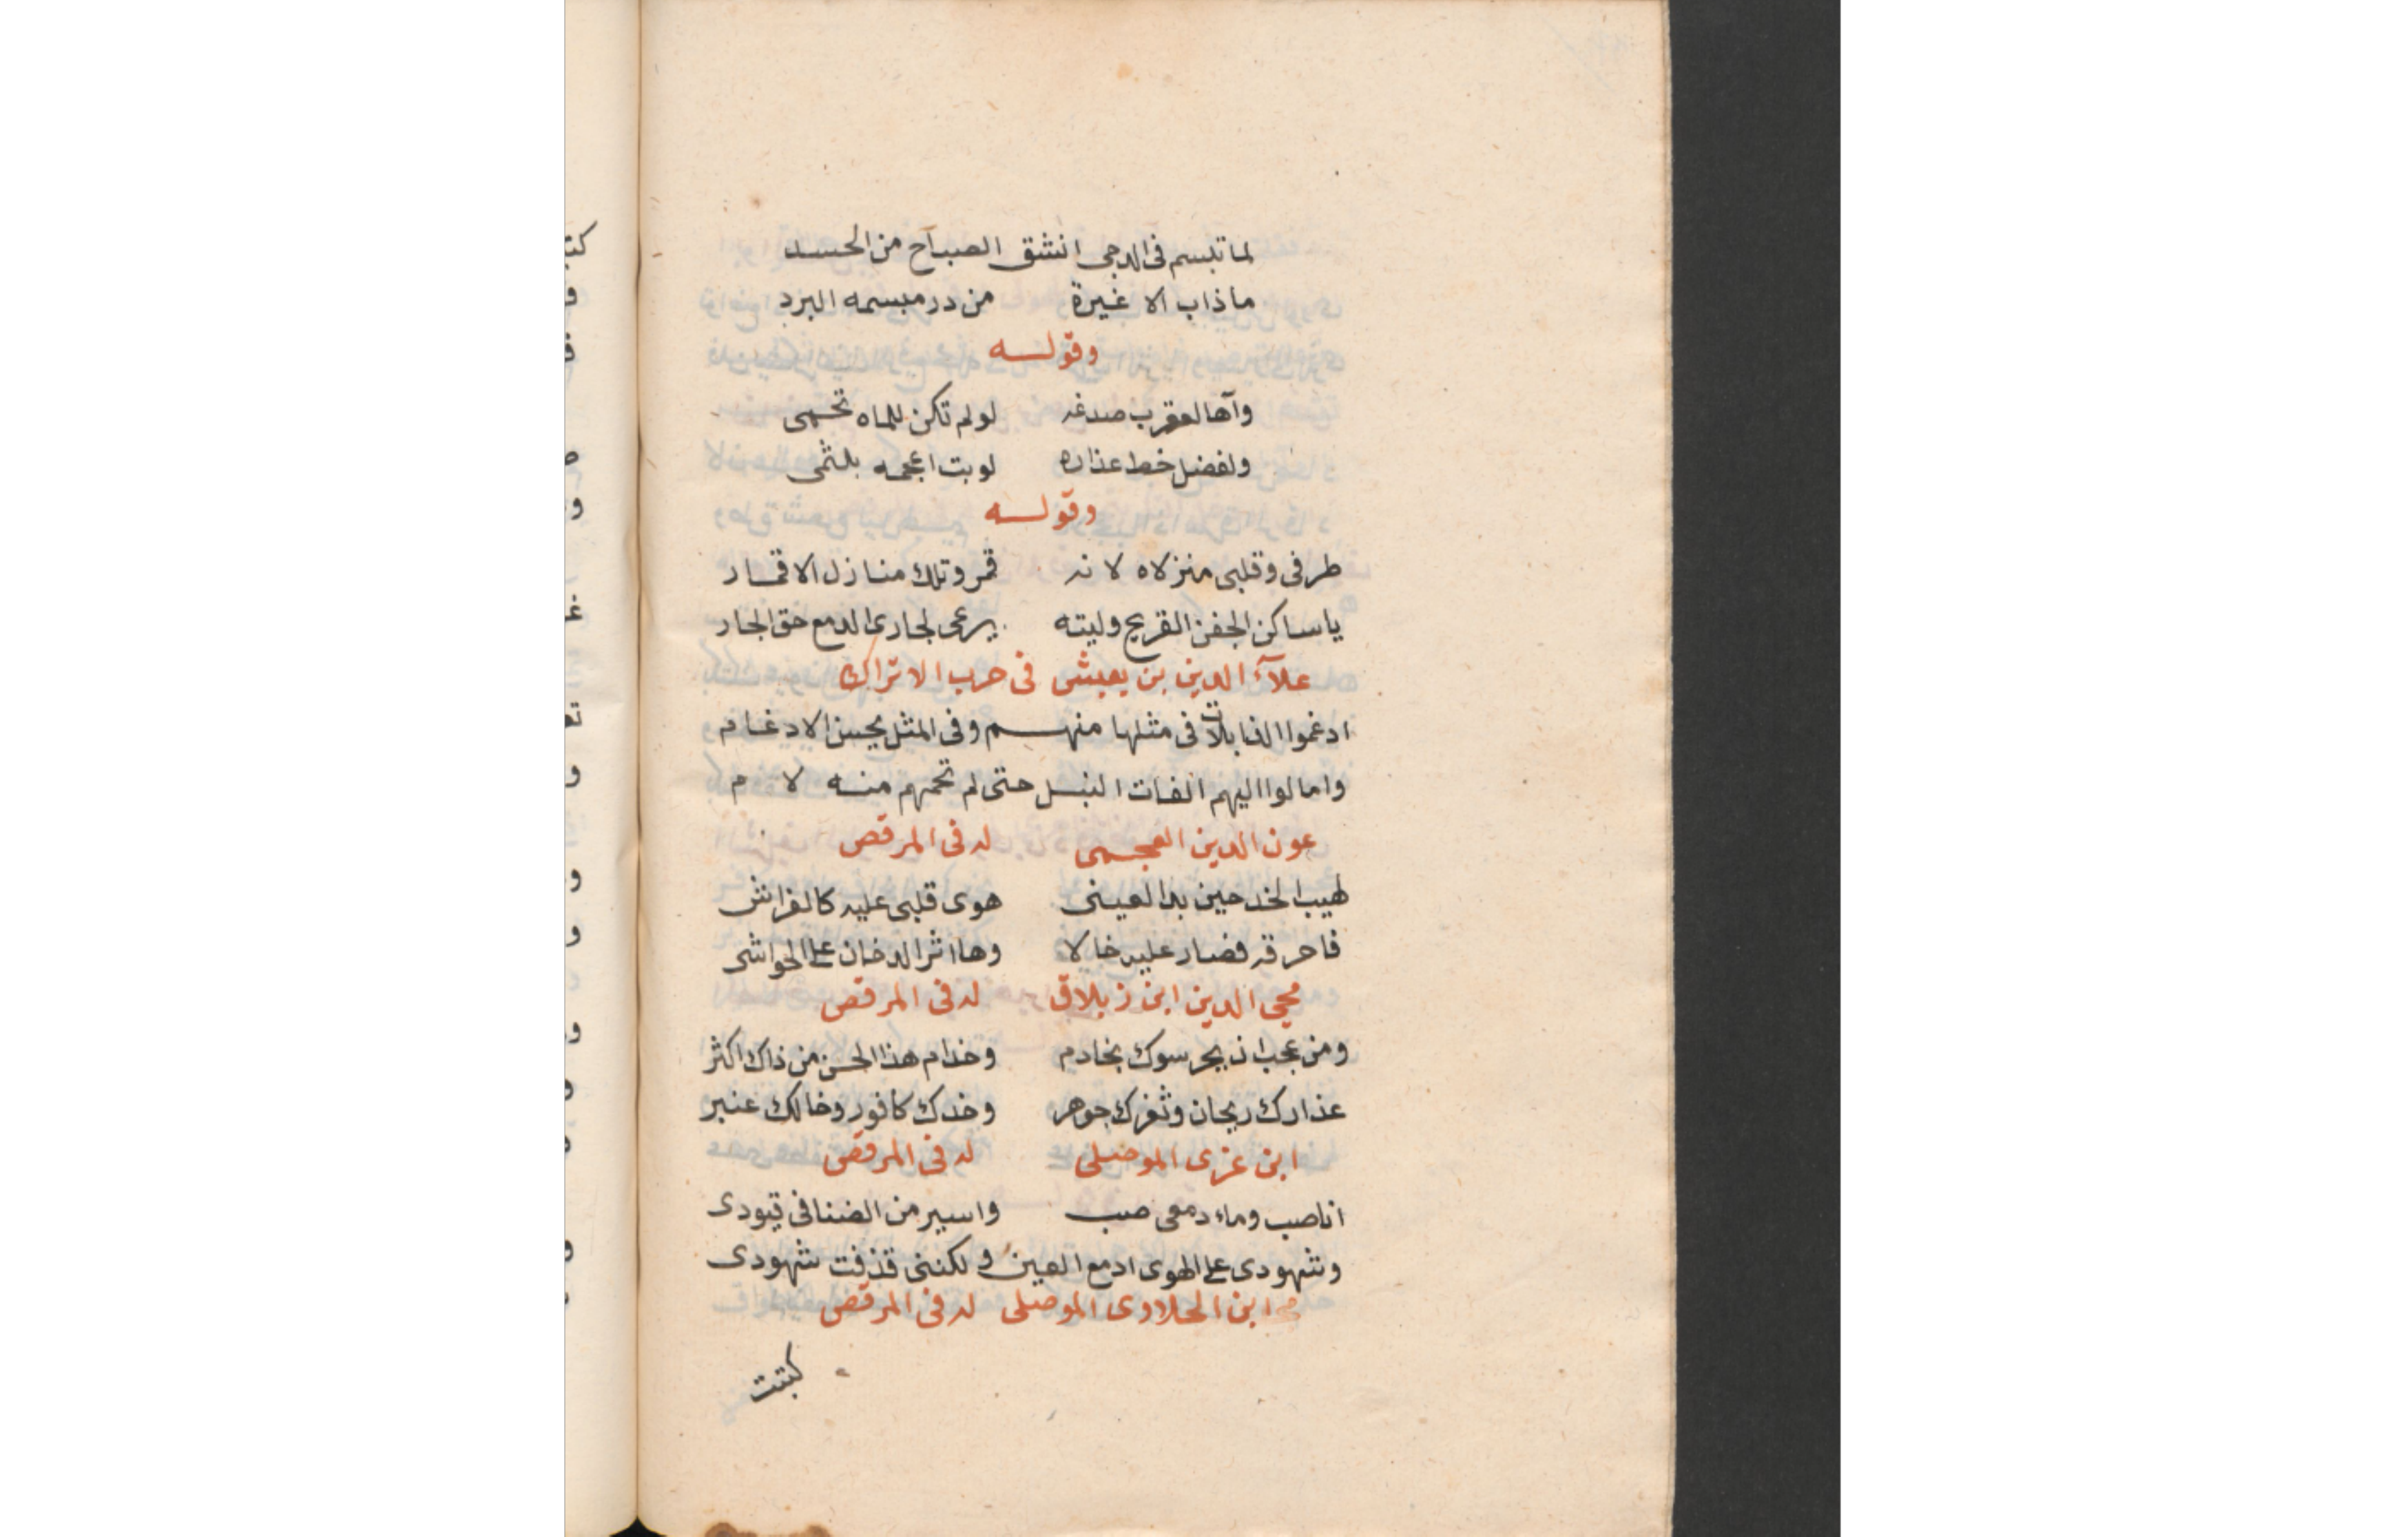 لما تبسم فى الدجى انشق الصباح من الحسد
ما ذاب الا غيرة من در مبسمه البرد
وقولــه
وآها لعقرب صدغه لو لم تكن للماه تحمى
ولفضل خط عذاره لو بت اعجمه بلثمى
وقولــه
طرفى وقلبى منزلاه لانه قمر وتلك منازل الاقمار
ياساكن الجفن القريح وليته يرعى لجارى الدمع حق الجار
علآء الدين بن يعيش فى حرب الاتراك
ادغموا الذابلات فى مثلها منهــم وفى المثل يحسن الادغام
وامالوا اليهم الفات النبـل حتى لم تحمهم منـه لام
عون الدين العجمى له فى المرقص
لهيب الخد حين بدا لعينى هوى قلبى عليه كالفراش
فاحرقه فصار عليه خالا وها اثر الدخان على الحواشى
محيى الدين ابن زبلاق له فى المرقص
ومن عجب ان يحرسوك بخادم وخدام هذا الحسن من ذاك اكثر
عذارك ريحان وثغرك جوهر وخدك كافور وخالك عنبر
ابن عزى الموصلى له فى المرقص
انا صب وماء دمعى صب واسير من الضنا فى قيودى
وشهودى على الهوى ادمع العين ولكننى قذفت شهودى
ابن الحلاوى الموصلى له فى المرقص
كتبت